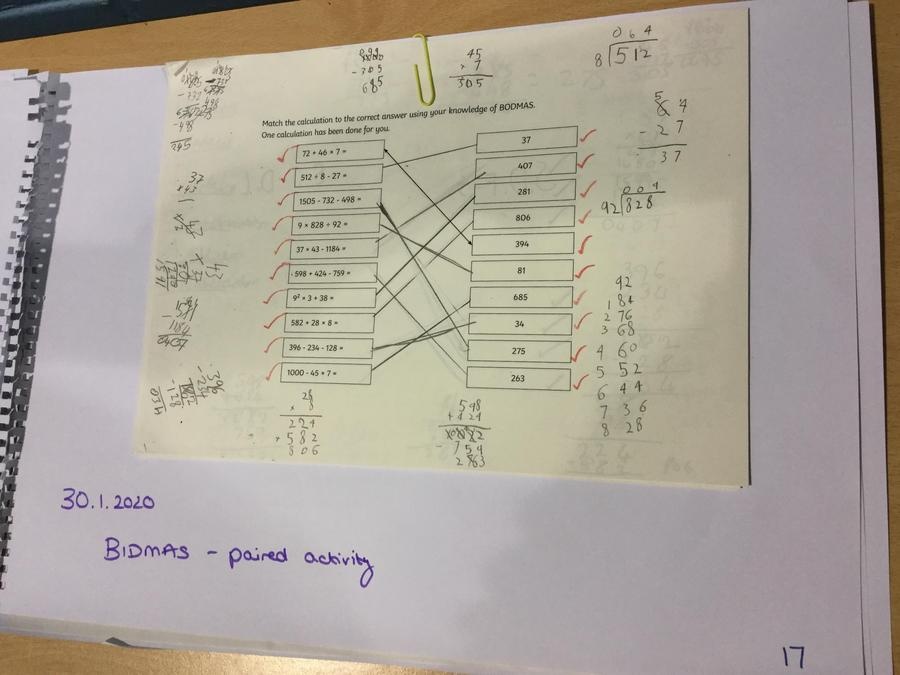 064
8 512
45
× 7
305
- 305
685
Match the calculation to the correct answer using your knowledge of BODMAS.
One calculation has been done for you.
72 + 46 × 7 =
512 ÷ 8 - 27 =
1505 - 732 - 498 =
9 × 828 ÷ 92 =
37 × 43 - 1184 =
598 + 424 - 759 =
9² × 3 + 38 =
582 + 28 × 8 =
396 - 234 - 128 =
1000 - 45 × 7 =
37
407
281
806
394
81
685
34
275
263
- 27
37
92 828
92
1 84
2 76
3 68
4 60
5 52
6 44
7 36
8 28
28
× 8
224
+ 582
806
598
+ 424
- 759
30.1.2020
BIDMAS - paired activity
17